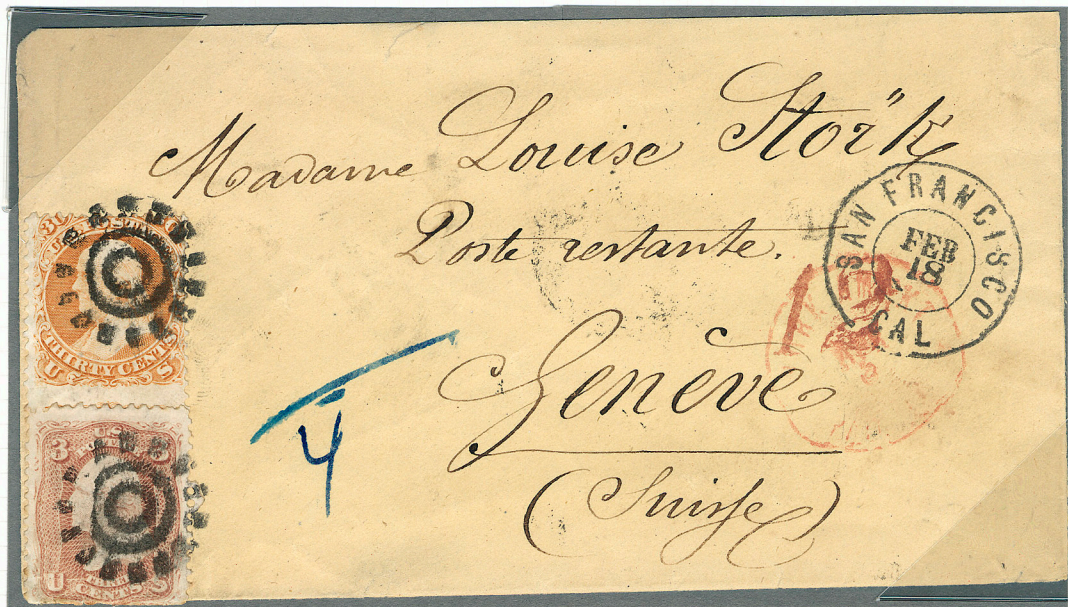 Madame Louise Stoïk
Poste restante.
Genève
(Suisse)
SAN FRANCISCO
FEB
18
CAL
4
30
U.S.
THIRTY CENTS
U S
3 3
U.S.
CENTS
U S